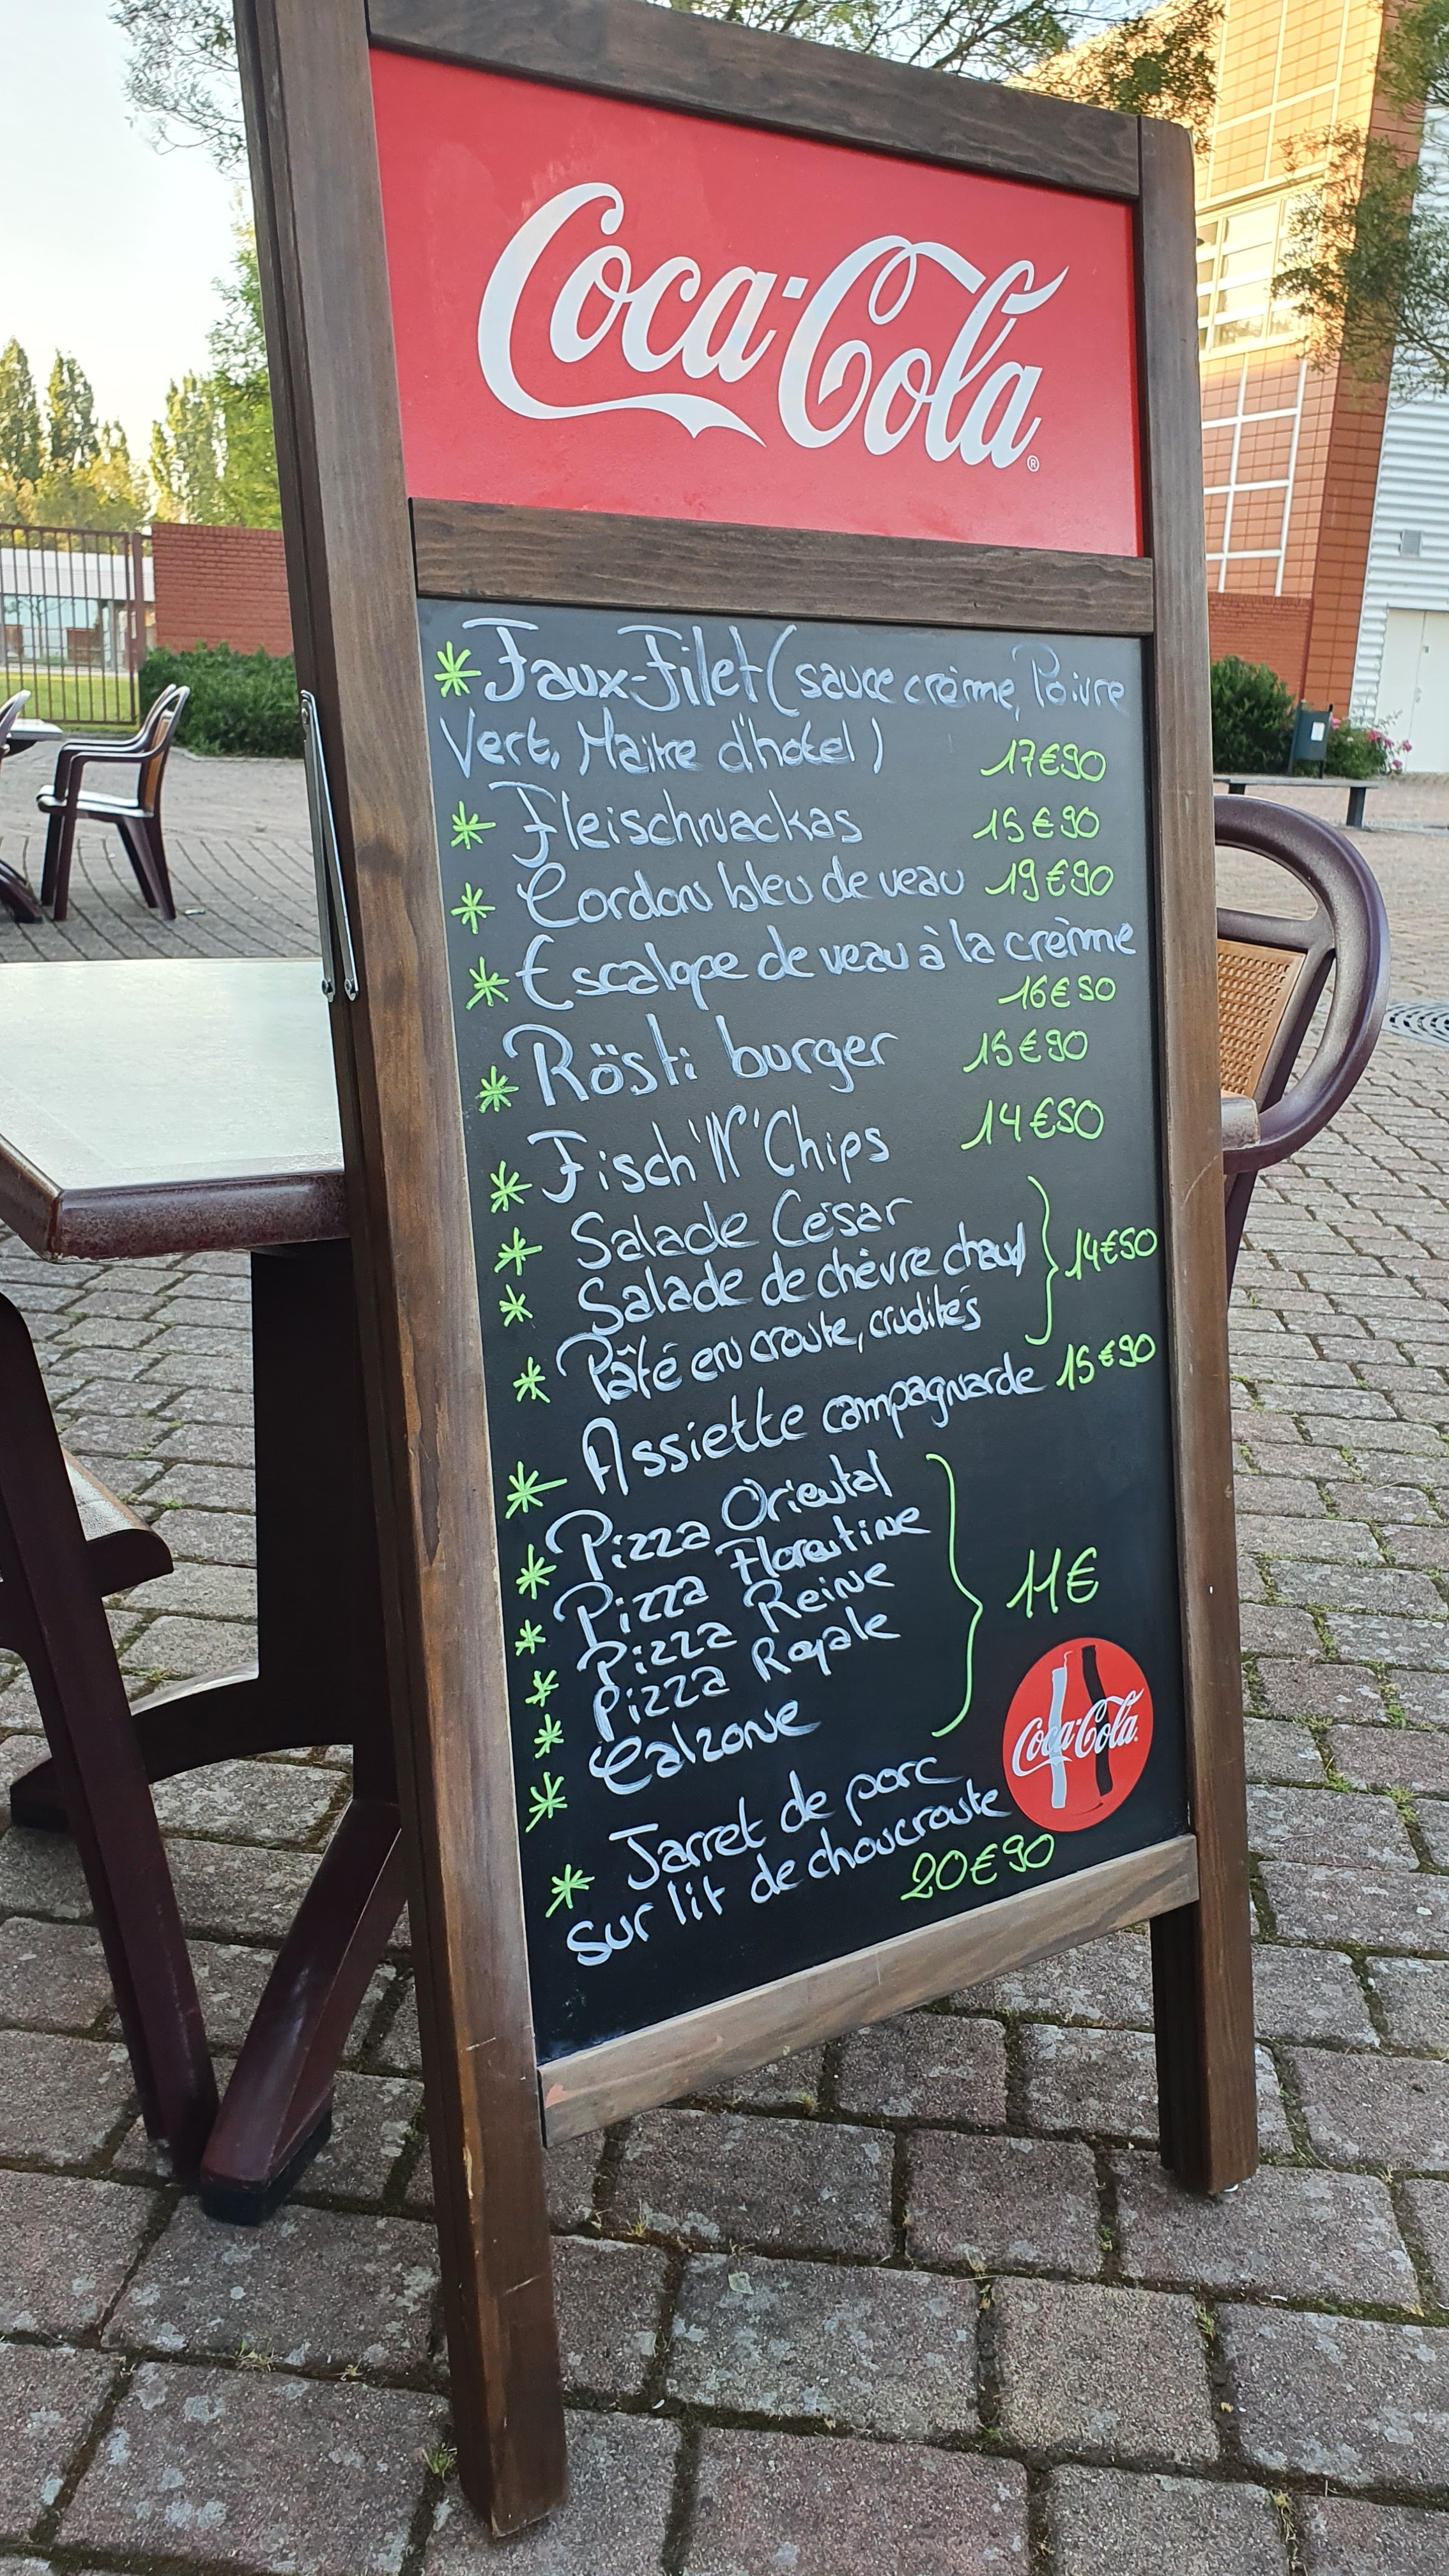 Coca-Cola®
* Faux-Filet (sauce crème, Poivre
Vert, Maitre d'hotel) 17€90
* Fleischnackas 15€90
* Cordon bleu de veau 19€90
* Escalope de veau à la crème
16€90
* Rösti burger 15€90
* Fisch 'N' Chips 14€50
* Salade César
* Salade de chèvre chaud 14€50
* Pâté en croute, crudités
* Assiette campagnarde 15€90
* Pizza Oriental
* Pizza Florentine
* Pizza Reine 11€
* Pizza Royale
* Calzone
* Jarret de porc
sur lit de choucroute
20€90
Coca-Cola